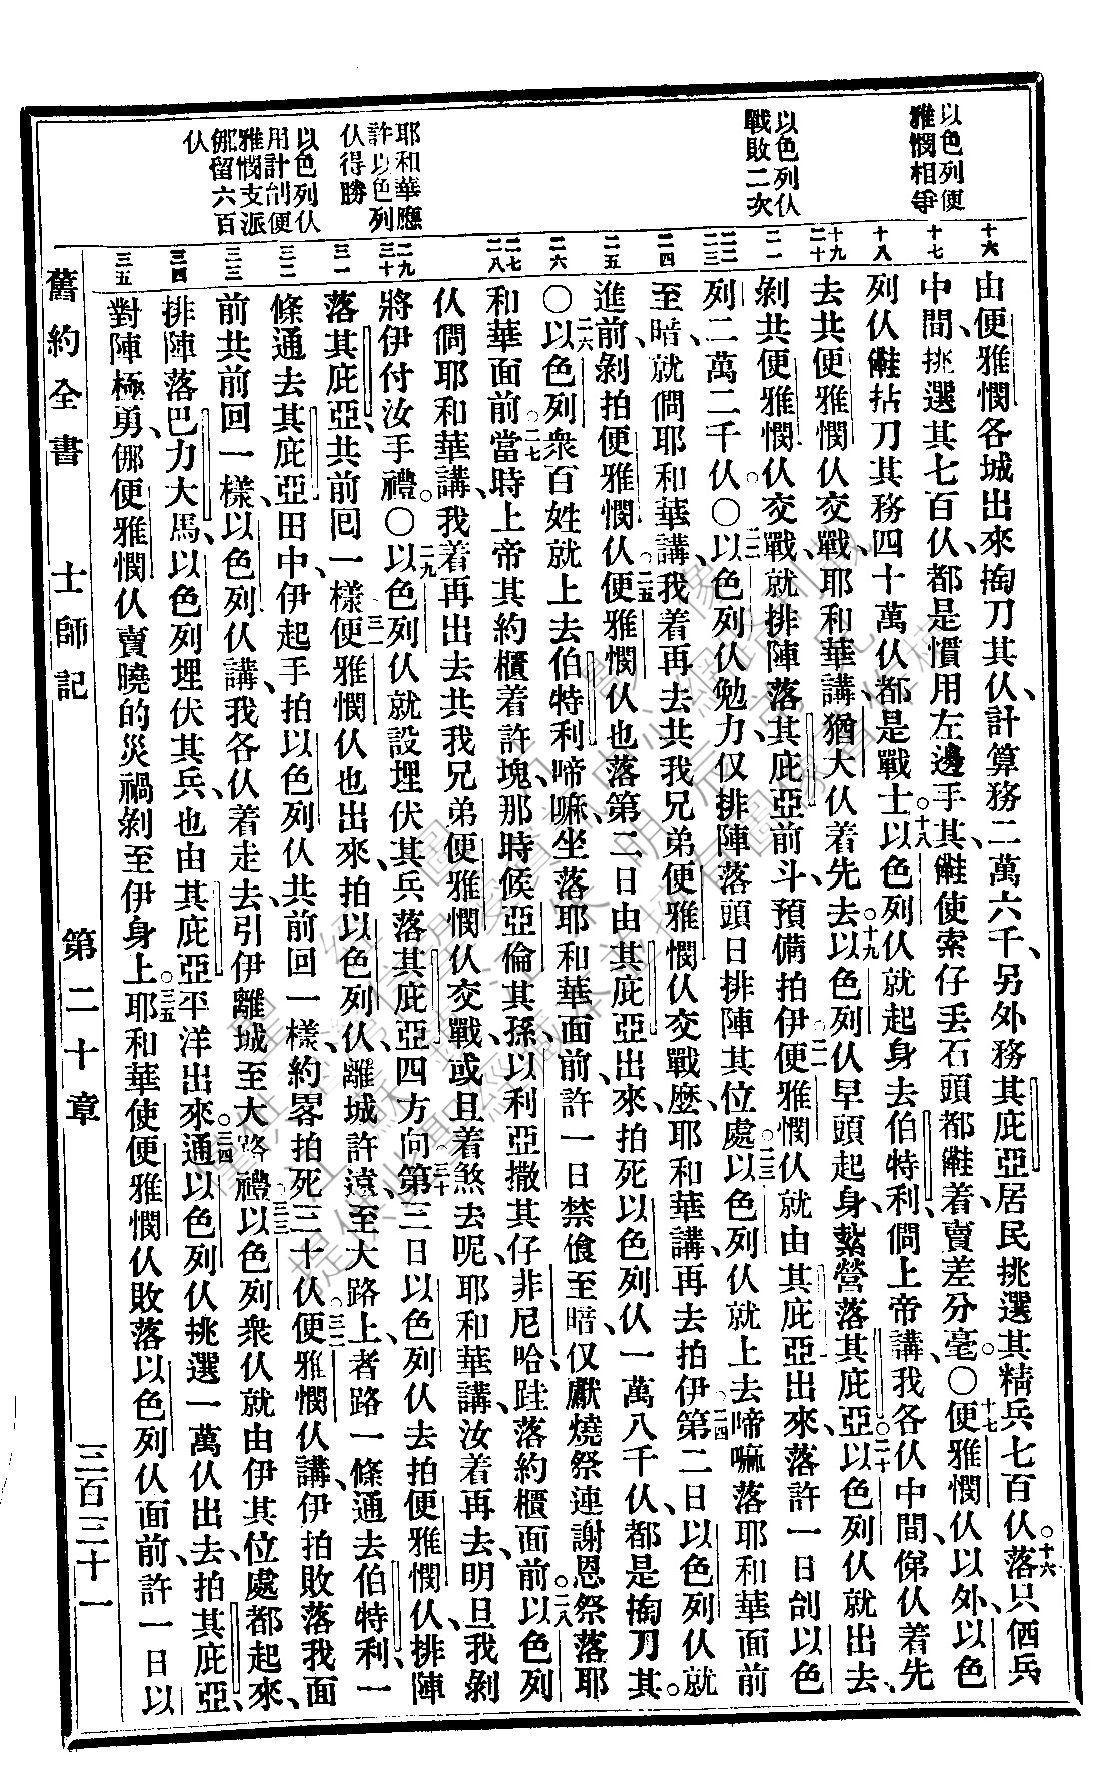 以色列便
雅憫相爭
以色列仈
戰敗二次
耶和華應
許以色列
仈得勝
以色列仈
用計刣便
雅憫支派
伓留六百
仈
十六
十七
十八
十九
二十
二一
二二
二三
二四
二五
二六
二七
二八
二九
三十
三一
三二
三三
三四
三五
由便雅憫各城出來、掏刀其仈、計算務二萬六千、另外務其庇亞居民挑選其精兵七百仈。十六落只偭兵
中間、挑選其七百仈、都是慣用左邊手其、使索仔丟石頭都着、賣差分毫。○十七便雅憫仈以外、以色
列仈拈刀其務四十萬仈、都是戰士。十八以色列仈就起身去伯特利、問上帝講、我各仈中間、仈着先
去共便雅憫仈交戰、耶和華講、猶大仈着先去。十九以色列仈早頭起身、紮營落其庇亞。二十以色列仈就出去、
剝共便雅憫仈交戰、就排陣落其庇亞前斗、預備拍伊。二一便雅憫仈就由其庇亞出來、落許一日刣以色
列二萬二千仈。○二二以色列仈勉力、仅排陣落頭日排陣其位處。二三以色列仈就上去啼嘛落耶和華面前
至暗、就問耶和華講、我着再去共我兄弟便雅憫仈交戰麽、耶和華講、再去拍伊。二四第二日以色列仈就
進前、剝拍便雅憫仈。二五便雅憫仈也落第二日由其庇亞出來、拍死以色列仈一萬八千仈、都是掏刀其。
○二六以色列衆百姓就上去伯特利啼嘛、坐落耶和華面前、許一日禁飠至暗、仅獻燒祭連謝恩祭落耶
和華面前。二七當時上帝其約櫃着許塊、那時候亞倫其孫、以利亞撒其仔、非尼哈跍落約櫃面前。二八以色列
仈問耶和華講、我着再出去共我兄弟便雅憫仈交戰、或且着煞去呢、耶和華講、汝着再去、明旦我剝
將伊付汝手禮。○二九以色列仈就設埋伏其兵落其庇亞四方向。三十第三日以色列仈去拍便雅憫仈、排陣
落其庇亞、共前回一樣。三一便雅憫仈也出來、拍以色列仈、離城許遠、至大路上、者路一條通去伯特利、一
條通去其庇亞、田中、伊起手拍以色列仈、共前回一樣、約畧拍死三十仈。三二便雅憫仈講、伊拍敗落我面
前、共前回一樣、以色列仈講、我各仈着走去、引伊離城至大路禮。三三以色列衆仈就由伊其位處都起來、
排陣落巴力大馬、以色列埋伏其兵、也由其庇亞平洋出來。三四通以色列仈挑選一萬仈出去、拍其庇亞、
對陣極勇、便雅憫仈賣曉的災禍剝至伊身上。三五耶和華使便雅憫仈敗落以色列仈面前、許一日以
舊約全書　士師記　第二十章　三百三十一